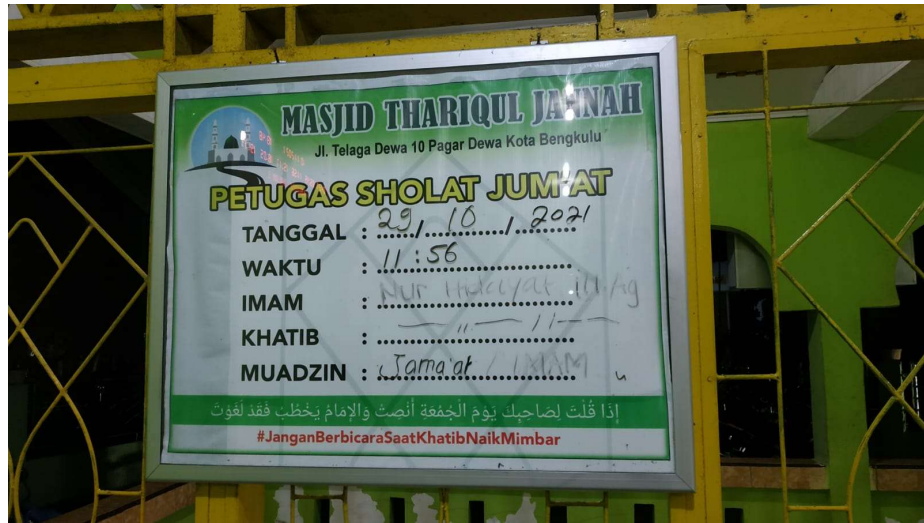 MASJID THARIQUL JANNAH
Jl. Telaga Dewa 10 Pagar Dewa Kota Bengkulu
PETUGAS SHOLAT JUM'AT
TANGGAL : 29 / 10 / 2021
WAKTU : 11 : 56
IMAM : Nur Hidayat M.Ag
KHATIB : — " — / / — —
MUADZIN : Jama'at / IMAM
إِذَا قُلْتَ لِصَاحِبِكَ يَوْمَ الْجُمُعَةِ أَنْصِتْ وَالْإِمَامُ يَخْطُبُ فَقَدْ لَغَوْتَ
#JanganBerbicaraSaatKhatibNaikMimbar